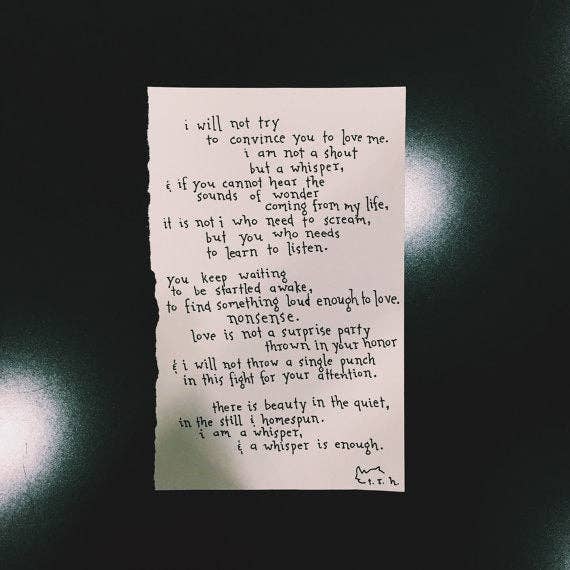 i will not try
to convince you to love me.
i am not a shout
but a whisper,
& if you cannot hear the
sounds of wonder
coming from my life,
it is not i who need to scream,
but you who needs
to learn to listen.
you keep waiting
to be startled awake,
to find something loud enough to love.
nonsense.
love is not a surprise party
thrown in your honor
& i will not throw a single punch
in this fight for your attention.
there is beauty in the quiet,
in the still & homespun.
i am a whisper,
& a whisper is enough.
t.r.h